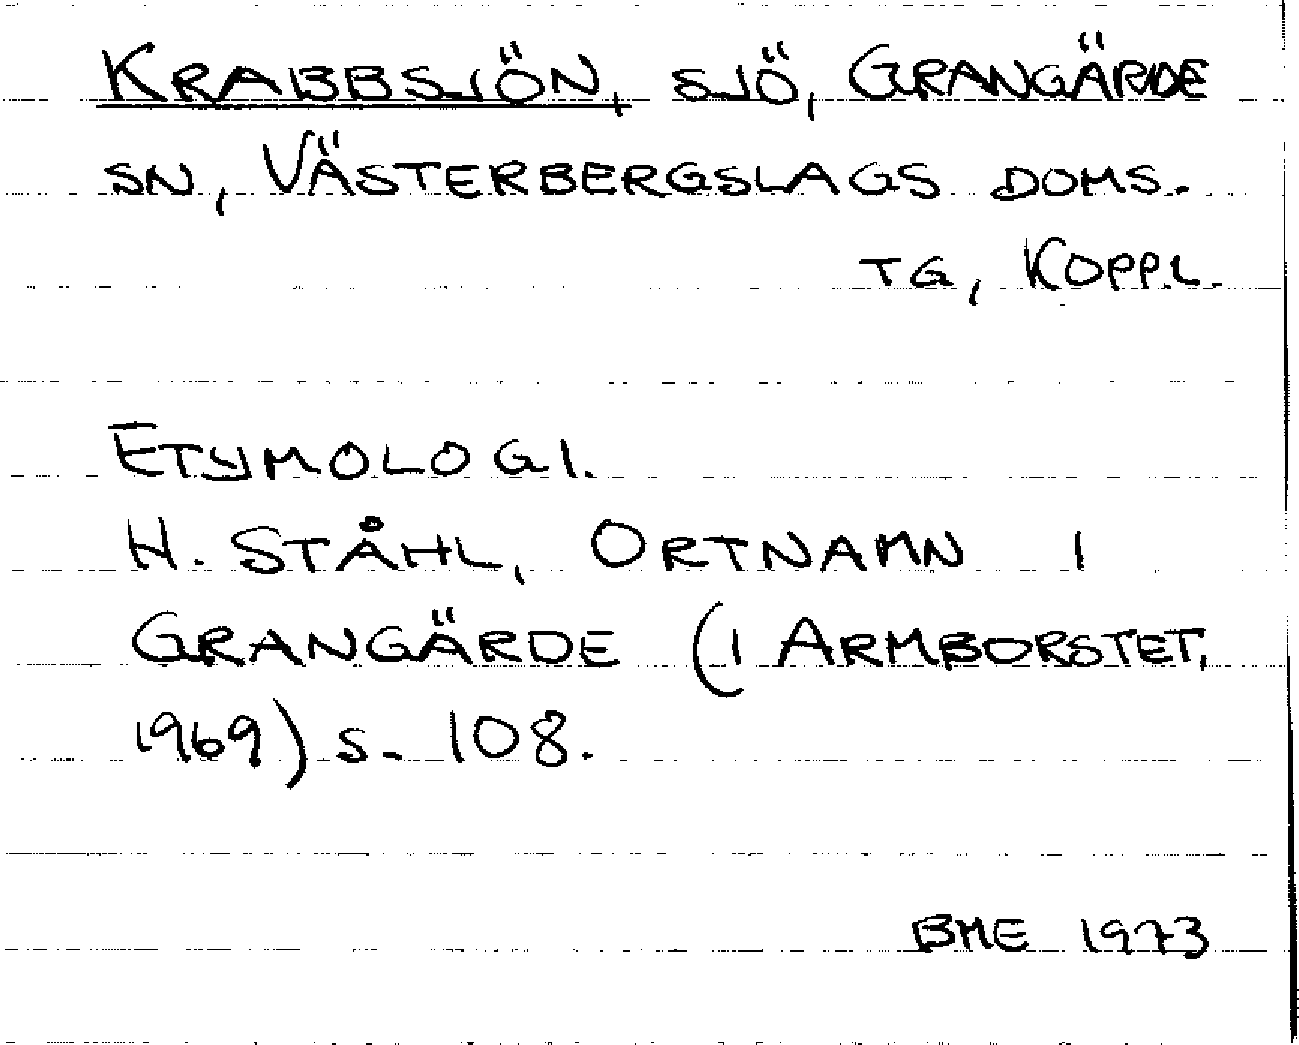 KRABBSJÖN, SJÖ, GRANGÄRDE
SN, VÄSTERBERGSLAGS DOMS.
TG, KOPP.L.
ETYMOLOGI.
H. STÅHL, ORTNAMN I
GRANGÄRDE (I ARMBORSTET,
1969) S. 108.
BME 1973